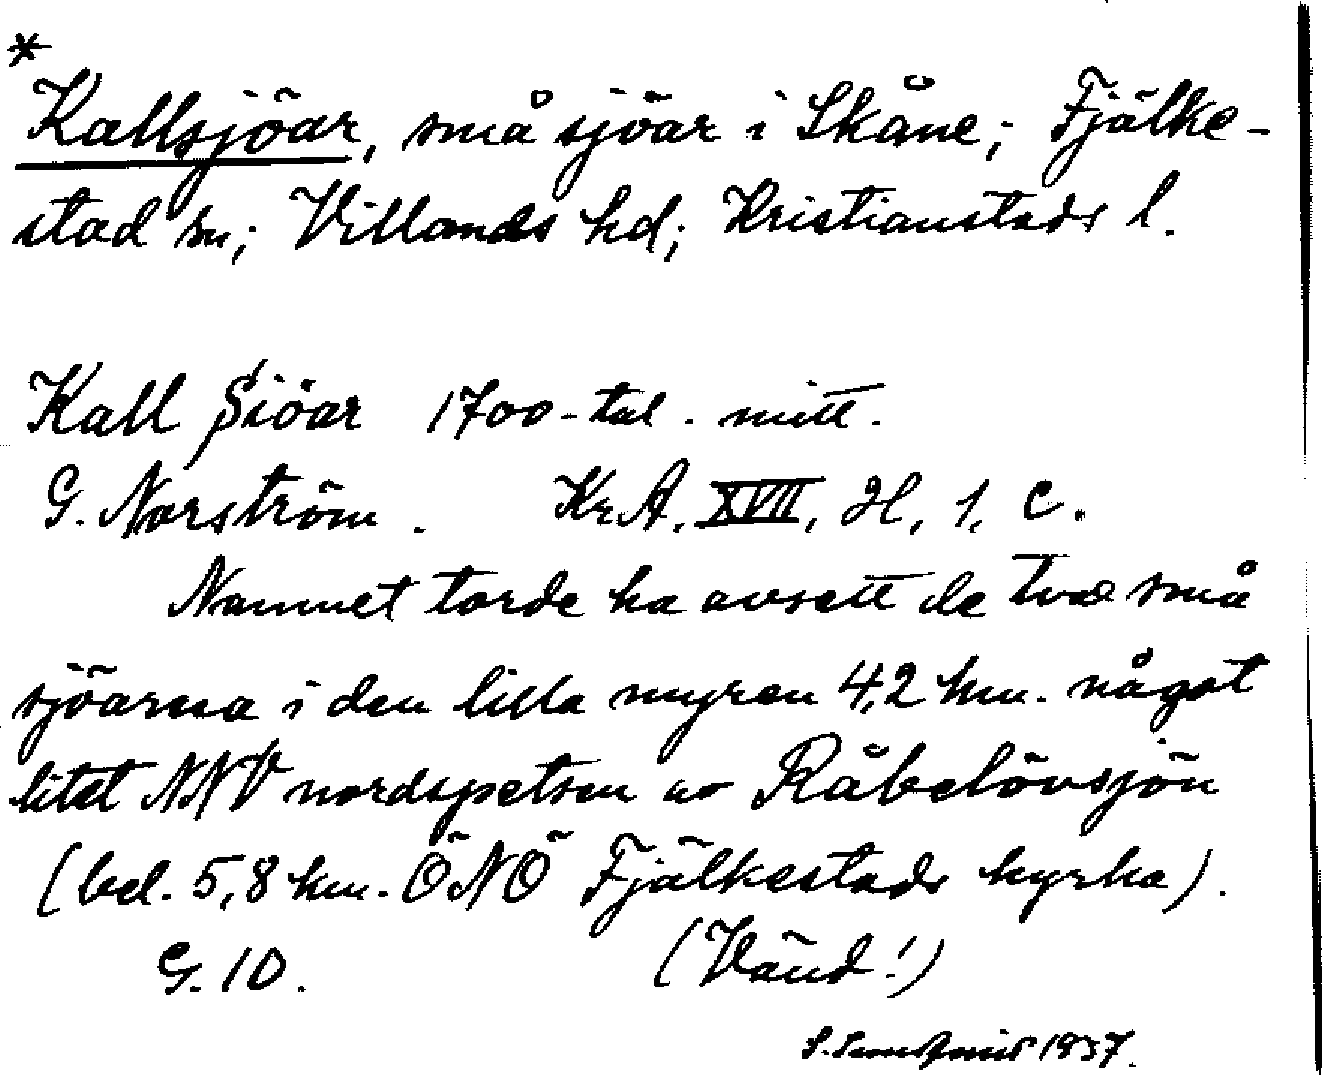 *
Kallsjöar, små sjöar i Skåne; Fjälke-
stad sn; Villands hd; Kristianstads l.
Kall Siöar 1700-tal. mitt.
G. Norström. KrA, XVII, H, 1, C.
Namnet torde ha avsett de två små
sjöarna i den lilla myren 4,2 km. något
litet NNV nordspetsen av Råbelövsjön
(bel. 5,8 km. ÖNÖ Fjälkestads kyrka).
G. 10. (Vänd!)
1937.